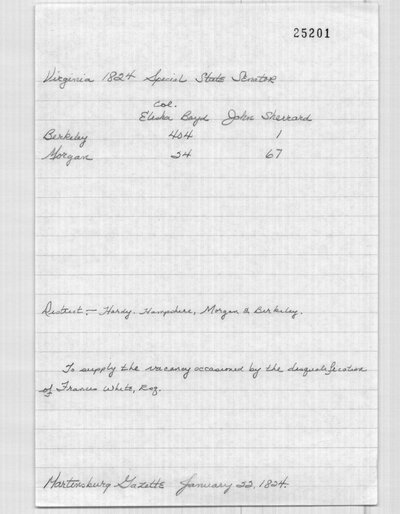 25201
Virginia 1824 Special State Senator
Col.
Elisha Boyd John Sherrard
Berkeley 404 1
Morgan 24 67
District:- Hardy Hampshire, Morgan & Berkeley.
To supply the vacancy occasioned by the disqualification
of Francis White, Esq.
Martinsburg Gazette January 22, 1824.